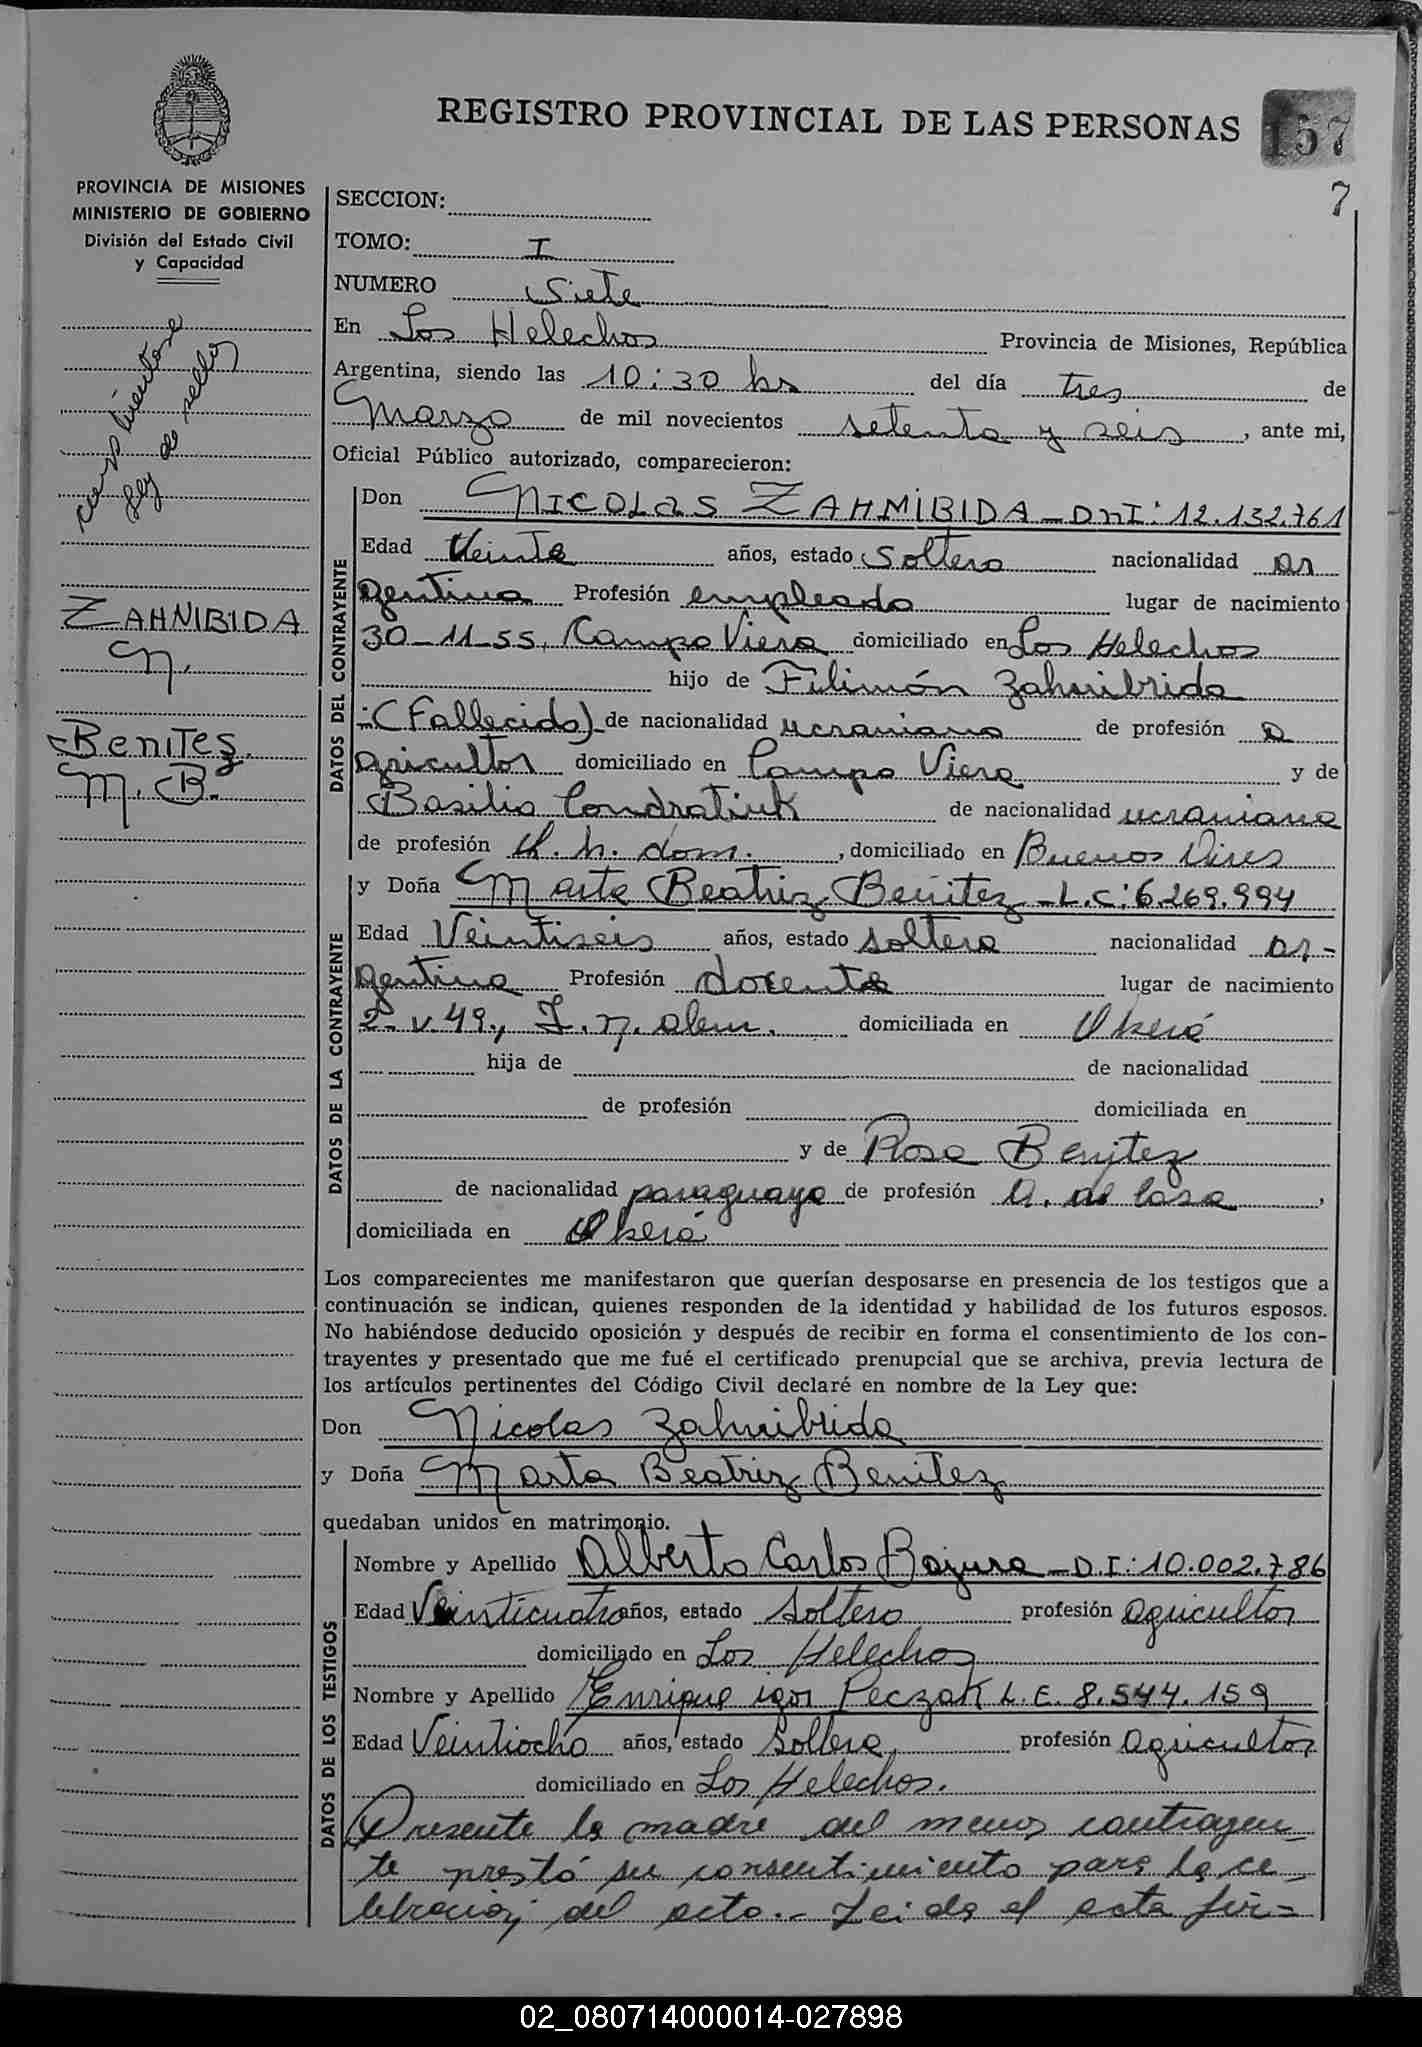 REGISTRO PROVINCIAL DE LAS PERSONAS
157
7
PROVINCIA DE MISIONES
MINISTERIO DE GOBIERNO
División del Estado Civil
y Capacidad
ley de sellos
ZAHNIBIDA
N.
Benitez
M. B.
SECCION:
TOMO: I
NUMERO Siete
En Los Helechos Provincia de Misiones, República
Argentina, siendo las 10:30 hs del día tres de
Marzo de mil novecientos setenta y seis, ante mi,
Oficial Público autorizado, comparecieron:
DATOS DEL CONTRAYENTE
Don NICOLAS ZAHNIBIDA - DNI: 12.132.761
Edad Veinte años, estado soltero nacionalidad ar
gentina Profesión empleado lugar de nacimiento
30-11-55, Campo Viera domiciliado en Los Helechos
hijo de Filimón Zahnibrida
-(Fallecido) de nacionalidad ucraniano de profesión a
gricultor domiciliado en Campo Viera y de
Basilia Condratiuk de nacionalidad ucraniana
de profesión q. h. dom. , domiciliado en Buenos Aires
DATOS DE LA CONTRAYENTE
y Doña Marta Beatriz Benitez - L.C: 6.269.994
Edad Veintiseis años, estado soltera nacionalidad ar-
gentina Profesión docente lugar de nacimiento
2-V-49, L. N. Alem. domiciliada en Oberá
hija de de nacionalidad
de profesión domiciliada en
y de Rosa Benitez
de nacionalidad paraguaya de profesión A. de casa ,
domiciliada en Oberá
Los comparecientes me manifestaron que querían desposarse en presencia de los testigos que a
continuación se indican, quienes responden de la identidad y habilidad de los futuros esposos.
No habiéndose deducido oposición y después de recibir en forma el consentimiento de los con-
trayentes y presentado que me fué el certificado prenupcial que se archiva, previa lectura de
los artículos pertinentes del Código Civil declaré en nombre de la Ley que:
Don Nicolas Zahnibrida
y Doña Marta Beatriz Benitez
quedaban unidos en matrimonio.
DATOS DE LOS TESTIGOS
Nombre y Apellido Alberto Carlos Bajura - D.I: 10.002.786
Edad Veinticuatro años, estado soltero profesión agricultor
domiciliado en Los Helechos
Nombre y Apellido Enrique igor Peczak L.E. 8.544.159
Edad Veintiocho años, estado soltero, profesión agricultor
domiciliado en Los Helechos.
Presente la madre del menor contrayen_
te prestó su consentimiento para la ce_
lebración del acto.- Leida el acta fir=
02_080714000014-027898